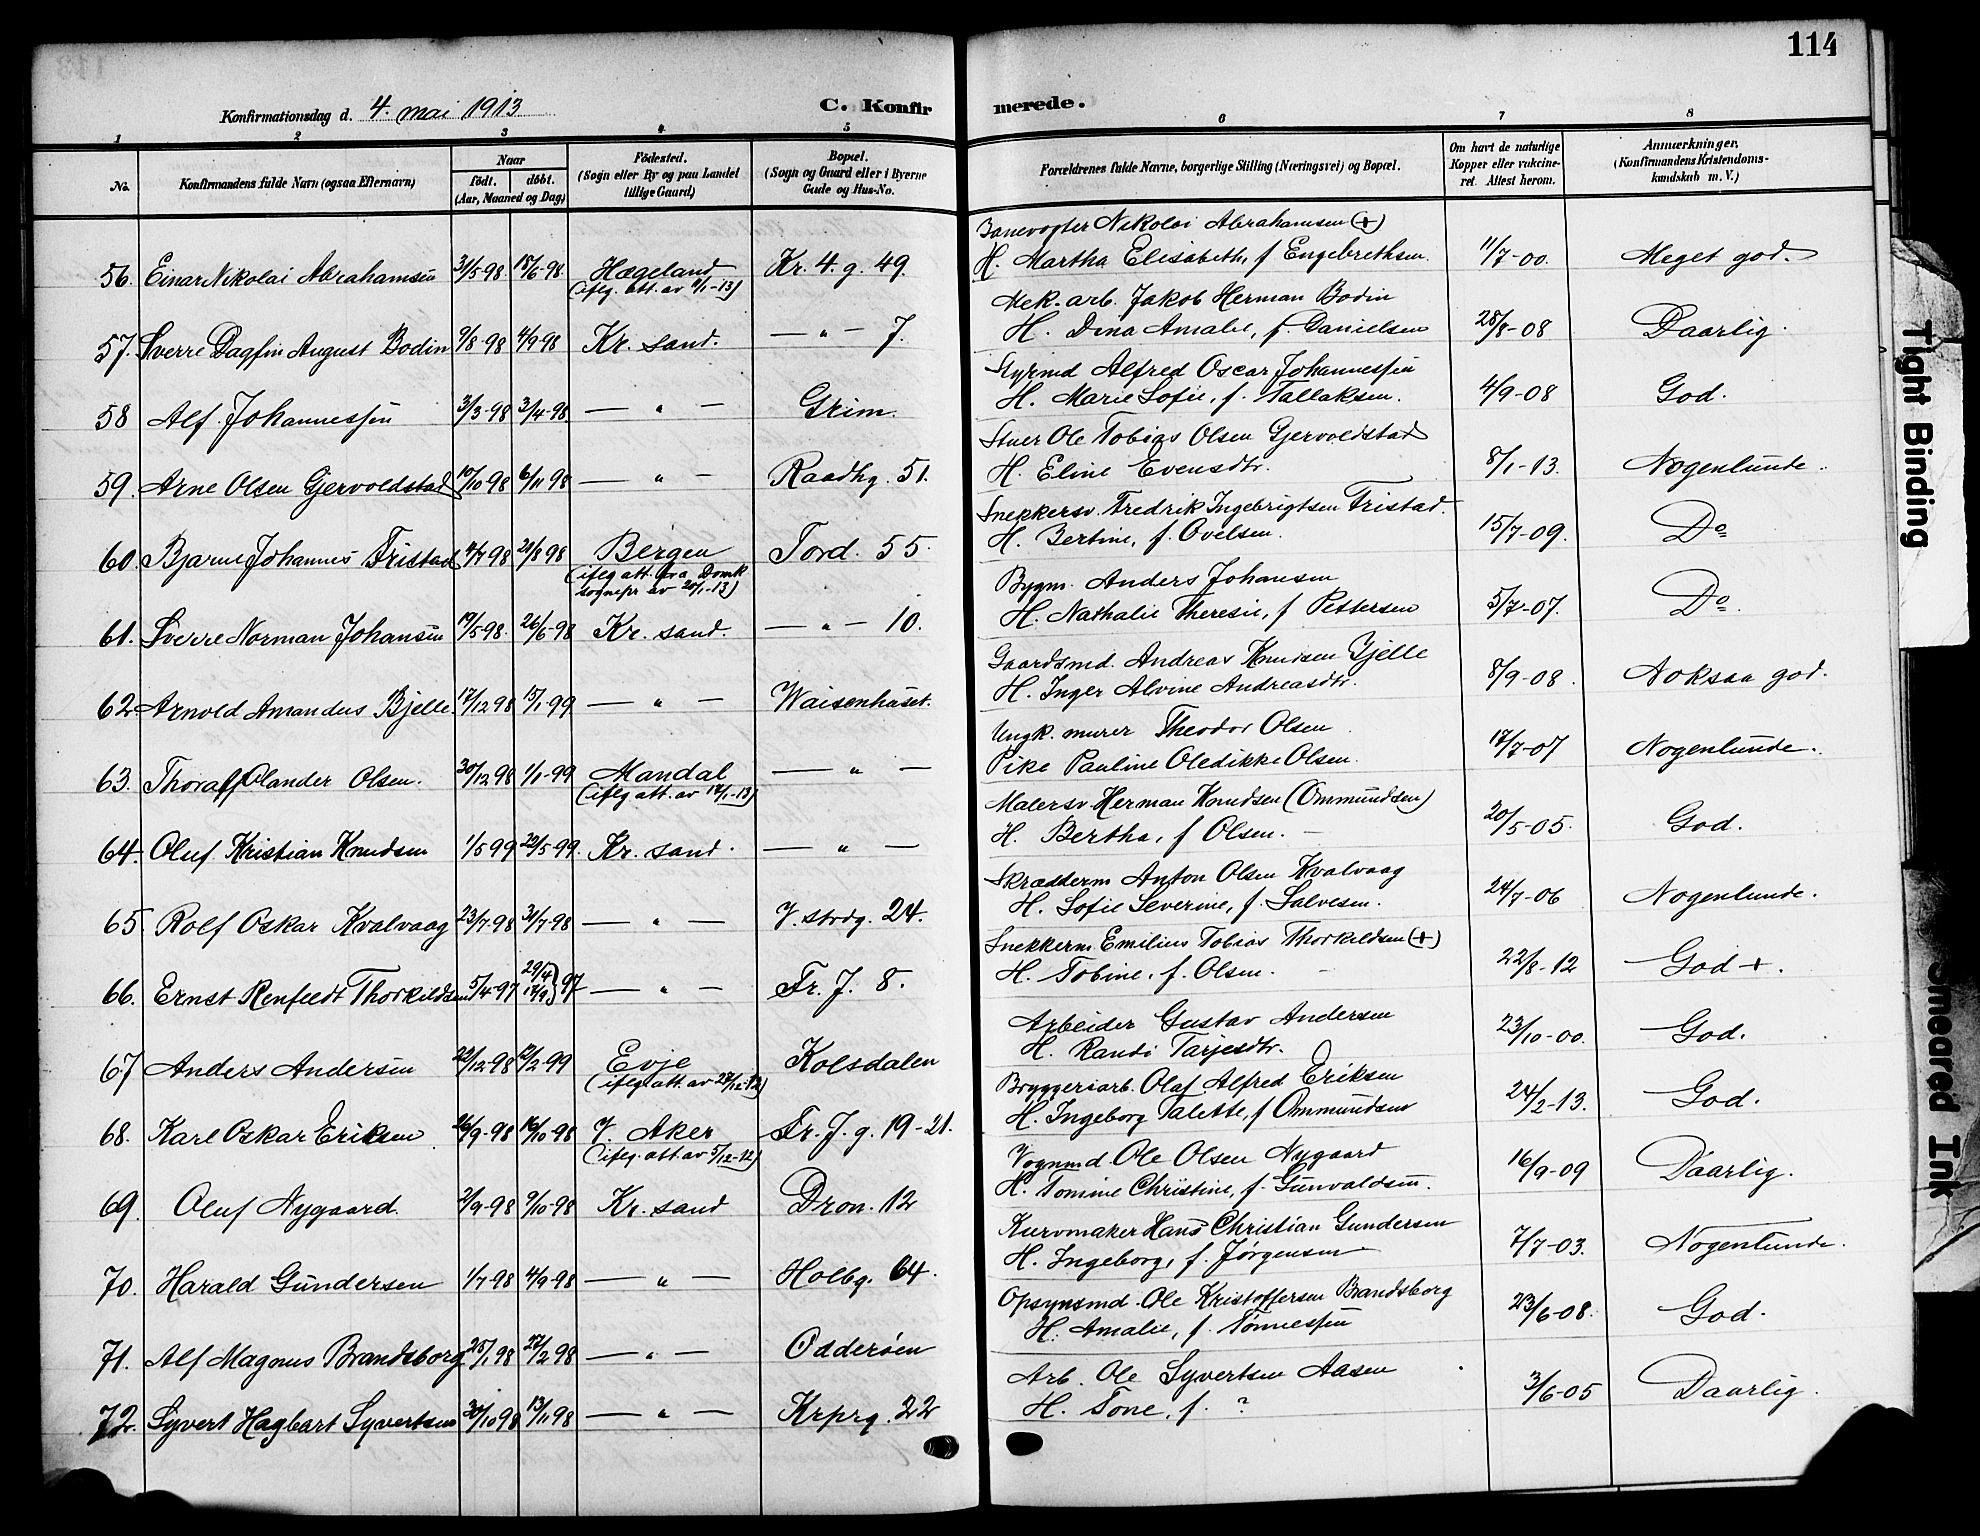 114
Konfirmationsdag d. 4. mai 1913
C. Konfirmerede.
1 2 3 4 5 6 7 8
No.
Konfirmandens fulde Navn (ogsaa Efternavn)
Naar
født. døbt.
(Aar, Maaned og Dag)
Fødested.
(Sogn eller By og paa Landet
tillige Gaard)
Bopæl.
(Sogn og Gaard eller i Byerne
Gade og Hus-No.
Forældrenes fulde Navne, borgerlige Stilling (Næringsvei) og Bopæl.
Om havt de naturlige
Kopper eller vakcine-
ret. Attest herom.
Anmærkninger.
(Konfirmandens Kristendoms-
kundskab m. V.)
Banevogter Nikolai Abrahamsen (+)
56. Einar Nikolai Abrahamsen 31/5-98. 18/6-98. Hægeland Kr. 4. g. 49. H. Martha Elisabeth, f Engebrethsen. 11/7-00. Meget god.
(ifлg. att. av 11/1-13)
Mek. arb. Jakob Herman Bodin
57. Sverre Dagfin August Bodin 9/8-98 4/9-98 Kr. sand. — " — 7. H. Dina Amalie, f. Danielsen 28/8-08 Daarlig.
Styrmd Alfred Oscar Johannessen
58 Alf Johannessen 3/3-98 3/4-98. — " — Grim. H. Marie Sofie, f. Tallaksen. 4/9-08 God.
Stuer Ole Tobias Olsen Gjervoldstad
59. Arne Olsen Gjervoldstad 10/10 98 6/11 98 — " — Raadhg. 51. H. Eline Evensdtr. 8/1-13. Nogenlunde.
Snekkersv. Fredrik Ingebrigtsen Tristad.
60. Bjarne Johannes Tristad 4/7-98 21/8 98 Bergen Tord. 55. H. Bertine, f. Ovelsen. 15/7-09. Do
(ifлg att. fra Domk
sognepr av 20/1-13)
Bygm. Anders Johansen
61. Sverre Norman Johansen 19/5-98. 26/6-98 Kr. sand. — " — 10. H. Nathalie Theresie, f Pettersen 5/7-07. Do.
Gaardsmd. Andreas Knudsen Bjelle
62. Arnold Amandus Bjelle. 17/12 98 15/1-99 — " — Waisenhuset. H. Inger Alvine Andreasdtr. 8/9-08. Noksaa god.
Ungk. murer Theodor Olsen
63. Thoralf Olander Olsen. 30/12 98 1/1-99 Mandal — " — Pike Pauline Oledikke Olsen. 17/7-07 Nogenlunde.
(ifлg att. av 14/1-13)
Malersv. Herman Knudsen (Ommundsen)
64. Oluf Kristian Knudsen 1/5 99 22/5-99. Kr. sand. — " — H. Bertha, f Olsen. 20/5-05. God.
Skrædderm Anton Olsen Kvalvaag
65 Rolf Oskar Kvalvaag 23/7-98 31/7-98 — " — V. strdg. 24. H. Sofie Severine, f. Salvesen. 24/7-06 Nogenlunde.
Snekkerm Emilius Tobias Thorkildsen (+)
66. Ernst Renfeldt Thorkildsen 5/4-97 29/4 12/9 } 97 — " — Fr. J. 8. H. Tobine, f. Olsen. 22/8-12 God +.
Arbeider Gustav Andersen
67 Anders Andersen 22/12-98 12/2-99 Evje Kolsdalen H. Randi Tarjesdtr. 23/10-00. God.
(ifлg att. av 28/12-12)
Bryggeriarb. Olaf Alfred Eriksen
68. Karl Oskar Eriksen 26/9-98 16/10-98 V. Aker Fr. J. g. 19-21. H. Ingeborg Talette, f Ommundsen 24/2-13. God.
(ifлg. att. av 5/12-12)
Vognmd. Ole Olsen Nygaard
69. Oluf Nygaard. 2/9-98 9/10-98 Kr. sand Dron. 12 H. Tomine Christine, f. Gunvaldsen. 16/9-09 Daarlig.
Kurvmaker Hans Christian Gundersen
70. Harald Gundersen 1/7-98 4/9-98 — " — Holbg. 64. H. Ingeborg, f. Jørgensen 7/7-03. Nogenlunde.
Opsynsmd. Ole Kristoffersen Brandsborg
71. Alf Magnus Brandsborg 25/1 98 27/2-98 — " — Odderøen H. Amalie, f. Tønnessen 23/6-08. God.
Arb. Ole Syvertsen Aasen
72. Syvert Hagbart Syvertsen 30/10 98 13/11 98 — " — Krprg. 22 H. Tone, f. ? 3/6-05 Daarlig.
Tight Binding
Smeared Ink